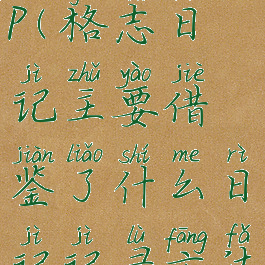 P(格志日
jì zhǔ yào jiè
记主要借
jiàn liǎo shí me rì
鉴了什么日
jì jì lù fāng fǎ
记记录方法